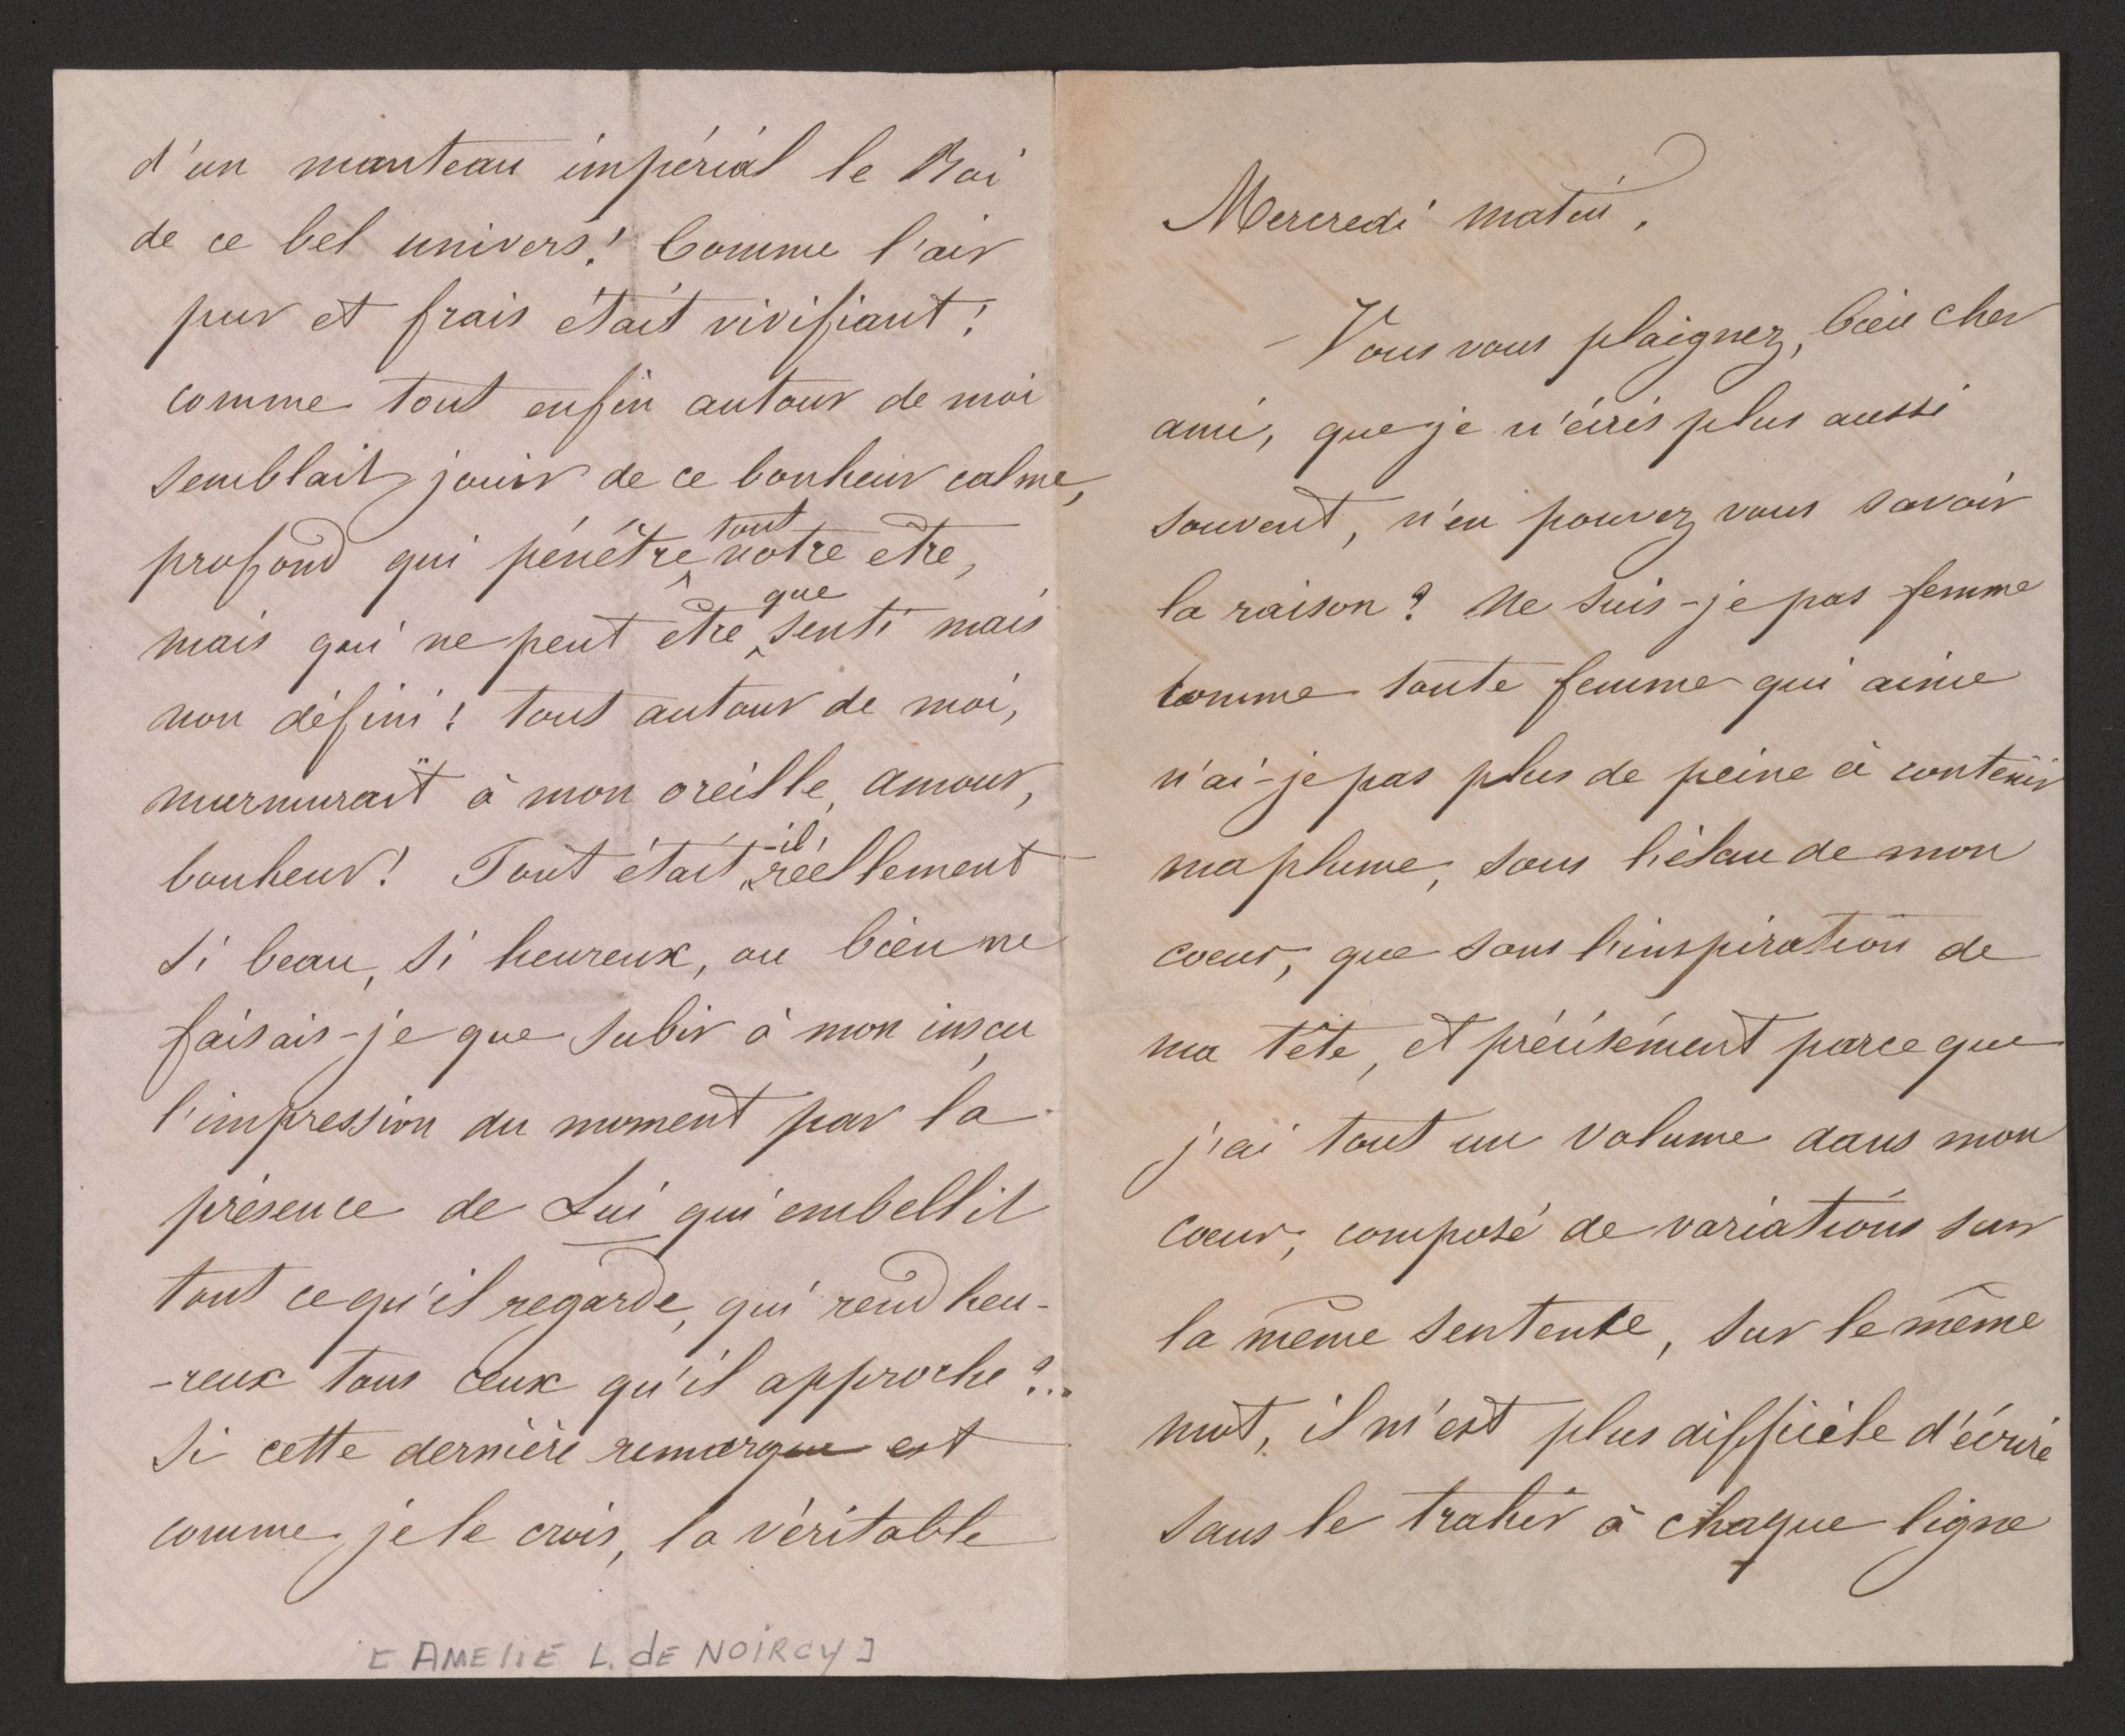 d'un manteau impérial le Roi
de ce bel univers! Comme l'air
pur et frais était vivifiant!
comme tout enfin autour de moi
semblait jouir de ce bonheur calme,
profond qui pénétre tout notre etre,
mais qui ne peut etre que senti mais
non défini! tout autour de moi,
murmurait à mon oreille, amour,
bonheur! Tout était-il réellement
si beau, si heureux, ou bien ne
faisais-je que subir à mon insçu
l'impression du moment par la
présence de Lui qui embellit
tout ce qu'il regarde, qui rend heu-
-reux tous ceux qu'il approche?..
Si cette dernière remarque est
comme je le crois, la véritable
[AMELIE L. dE NOIRCY]
Mercredi matin.
Vous vous plaignez, bien cher
ami, que je n'écris plus aussi
souvent, n'en pouvez vous savoir
la raison? Ne suis-je pas femme
comme toute femme qui aime
n'ai-je pas plus de peine à contenir
ma plume, sous l'élan de mon
coeur, que sous l'inspiration de
ma tête, et précisément parce que
j'ai tout un volume dans mon
coeur, composé de variations sur
la même sentence, sur le même
mot, il m'est plus difficile d'écrire
sans le trahir à chaque ligne